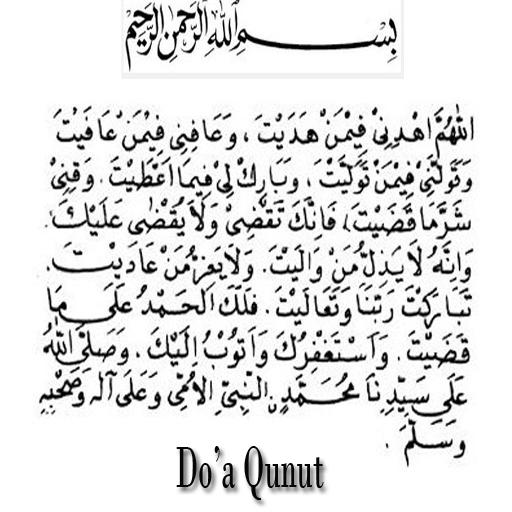 بِسْمِ اللهِ الرَّحْمٰنِ الرَّحِيْمِ
اَللّٰهُمَّ اهْدِنِىْ فِيْمَنْ هَدَيْتَ ، وَعَافِنِى فِيْمَنْ عَافَيْتَ
وَتَوَلَّنِىْ فِيْمَنْ تَوَلَّيْتَ ، وَبَارِكْ لِىْ فِيْمَا اَعْطَيْتَ . وَقِنِىْ
شَرَّمَا قَضَيْتَ ، فَاِنَّكَ تَقْضِىْ وَلَا يُقْضٰى عَلَيْكَ .
وَاِنَّهُ لَا يَذِلُّ مَنْ وَالَيْتَ . وَلَا يَعِزُّ مَنْ عَادَيْتَ .
تَبَارَكْتَ رَبَّنَا وَتَعَالَيْتَ . فَلَكَ الْحَمْدُ عَلَى مَا
قَضَيْتَ . وَاَسْتَغْفِرُكَ وَاَتُوْبُ اِلَيْكَ . وَصَلَّى اللهُ
عَلَى سَيِّدِنَا مُحَمَّدٍ النَّبِيِّ الْاُمِّيِّ وَعَلَى آلِهِ وَصَحْبِهِ
وَسَلَّمَ .
Do'a Qunut